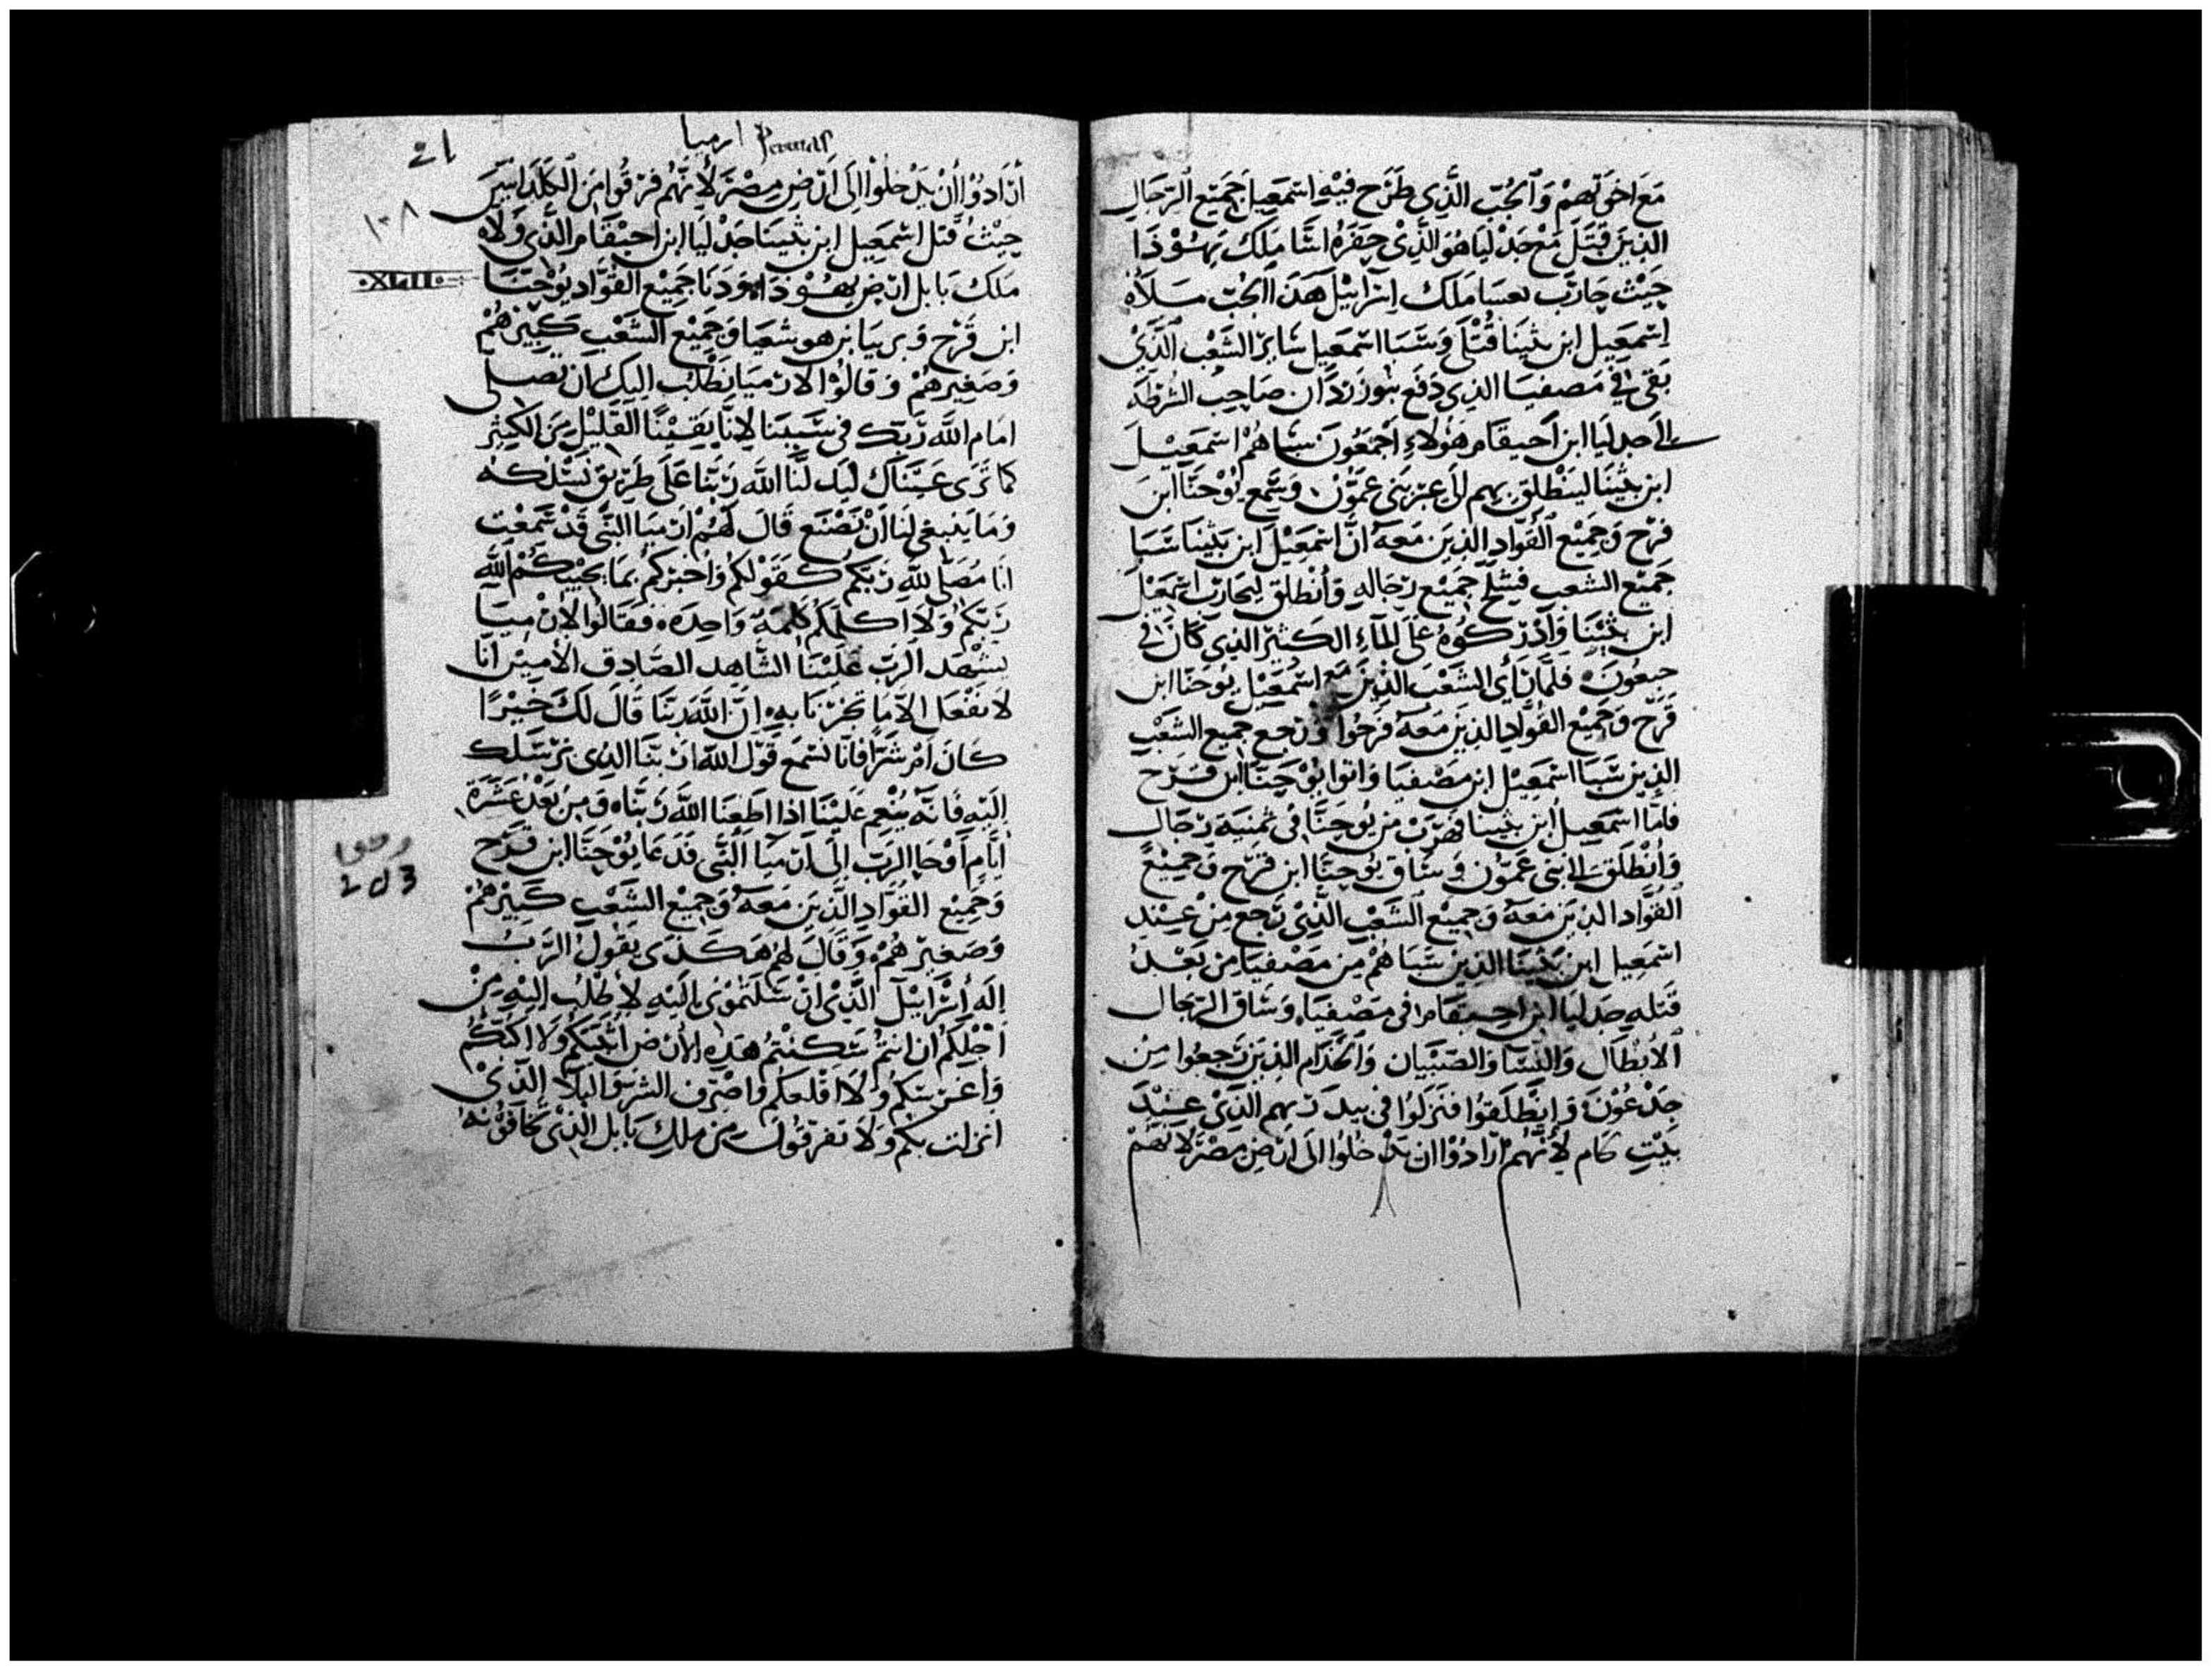 مَعَ اخوَتهِمْ وَالجُبّ الَّذِى طَرَح فيْهِ اسْمَعِيل جَمِيْع الرّجَالِ
الذينَ قَتَلَ مَعْ جَدْلْيَا هُوَ الَّذِىْ حَفَرَهُ اسَّا مَلِك يَهُوْذَا
حَيْث حَارَبَ بعسَا مَلِك اسرَايْيل هَذَا الجُبّ مَلَأهُ
اسْمَعِيل ابن نثينَا قُتْلَى وَسَبَا اسْمَعِيل سَايرَ الشَعْب الَّذِىْ
بَقى فِى مَصفيَا الذِى دَفَع نبوزردان صَاحِب الشُرْطَه
الى جدليَا ابن احيقَام هَؤلاءِ اجْمَعُونَ سبَاهُمْ اسْمَعِيْل
ابن نثينَا لينْطلِق بِهم الى عبر بَنى عَمّوْن وَسَمِع يُوْحَنَّا ابن
قرَح وَجَمِيْع القُوّادِ الذِينَ مَعَهُ انَّ اسْمَعِيْل ابن نثينَا سَبَا
جَمِيْع الشعب فسَلَّحَ جَمِيْع رجَاله وَانْطلق ليحَارب اسْمَعِيْل
ابن نثينَا وَادْرَكُوهُ عَلَى المَاءِ الكَثير الذِى كَانَ فِى
جبعُون فلمَّا رَأى الشَعْب الذِينَ مَع اسْمَعِيْل يوحَنّا ابن
قَرَح وَجَمِيْع القُوّادِ الذِينَ مَعَهُ فَرِحُوا وَرجع جَمِيع الشَعْب
الذِين سَبَا اسْمَعِيْل ابن مَصْفيَا وَاتوا يُوْحَنّا ابن قَرَح
فامَّا اسْمَعِيل ابن نثينَا فهَرَبَ من يُوحَنَّا فى ثمنيَة رجَال
وَانْطَلَق الى بَنى عَمّون وَسَاق يُوحَنَّا ابن قَرَح وَجَمِيْع
القُوَّاد الذِينَ مَعَهُ وَجَمِيْع الشَعْب الَّذِىْ رَجع مِنْ عِنْد
اسْمَعِيل ابن نثينَا الذِين سَبَاهُمْ مِن مَصْفيَا مِن بَعْد
قَتله جدليَا ابن احيقَام فى مَصْفيَا وَسَاق الرّجَال
الأبْطَال وَالنّسَا وَالصّبْيَان وَالخُدّام الذِينَ رَجعُوا مِن
جدْعُوْن وَانطَلَقوُا فنَزَلُوا فى بيد ربهم الَّذِىْ عِنْدَ
بَيْتِ كَام لأَنَّهُمْ ارَادُوْا ان يَدْخُلُوا الَى ارْضِ مِصْرَ لانهُمْ
ارميا
21
ارَادُوْا أنْ يَدْخلُوْا إلَى ارْضِ مِصْرَ لأنَّهُم فرقُوا مِنَ الكَلْدَانيّيْن
١٠٨
حيْثُ قَتَل اسْمَعِيل ابن نثينَا جَدْليَا ابن احيْقَام الَّذِى وَلاه
·XLII·
مَلِك بَابل ارْض يهُوْذَا وَدَنَا جَمِيْع القُوّاد يُوْحَنّا
ابن قَرَح وَبريَا بن هوشعيَا وَجَمِيْع الشَعْب كَبِيْرهُمْ
وَصَغِيرهُمْ وَقالوُا لارميَا نَطْلُب اليك ان تُصلى
امَام اللّه رَبّك فى سَبَبنَا لانَّا بَقيْنَا القَلِيْل مِنَ الكَثِيْر
كَمَا تَرَى عَيْنَاك ليَدلّنَا اللّه رَبّنَا عَلَى طَرِيْق نَسْلكه
وَمَا يَنبَغى لنَا انْ نَصْنَع قَالَ لَهُمْ ارْميَا النَبّى قَدْ سَمعْت
انَا مُصَلّى للّهِ رَبّكم كقَوْلكُم وَاخْبركُم بمَا يجيْبكُمْ اللّه
رَبّكُمْ وَلا اكلّمكُم كَلِمَةً وَاحِدَه فقَالوُا لارْميَا
يشهَد الرَبّ عَلَيْنَا الشَّاهِد الصَّادِق الأمِيْن انّا
لا نفْعَل الاَّ مَا تخْبرنَا بهِ انّ اللّه رَبنَا قَال لَكَ خَيْرًا
كَانَ امْ شَرًّا فانَا نسْمَع قَوْل اللّه رَبّنَا الذِى نُرْسَلك
اليْهِ فَانّه يُنْعِم عَلَيْنَا اذَا اطَعْنَا اللّه رَبّنَا وَمِن بَعْد عَشْرَة
ايّام اوْحَا الرَبّ الَى ارْميَا النَّبّى فدَعَا يُوْحَنَّا ابن قَرَح
وَجَمِيْع القُوَّادِ الَّذِينَ مَعَهُ وَجَمِيْع الشَعْب كَبِيْرهُمْ
وَصَغيرهُمْ وَقَالَ لهُم هَكَذَى يَقُولُ الرَّبّ
إله اسْرَايْيل الَّذِىْ ارْسَلتمُوْنى اليْهِ لأطْلُب اليْهِ مِنْ
اجْلكُم ان انْتُمْ سَكنتُمْ هَذِهِ الأرْض ابْنيكُمْ وَلا اكبّكُمْ
وَاغرسَكُمْ وَلا اقْلعكم وَاصْرِف الشر وَالبَلا الَّذِىْ
انزلت بكم وَلا تفرقوُن مِن مَلِكِ بَابل الَّذِىْ تخَافُوْنهُ